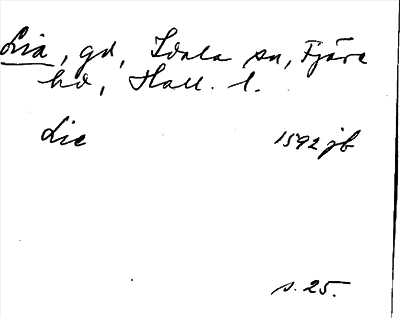 Lia, gd, Idala sn, Fjäre
hd, Hall. l.
Lie 1592 jb
s. 25.